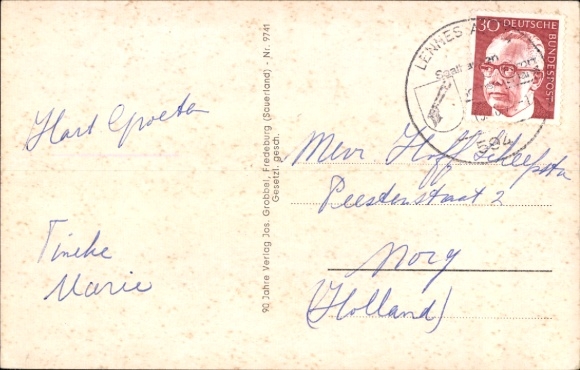 Hart Groeten
Tineke
Marie
90 Jahre Verlag Jos. Grobbel, Fredeburg (Sauerland) - Nr. 9741
Gesetzl. gesch.
30 DEUTSCHE BUNDESPOST
LENNES
594
Mevr
Peestenstraat 2
Norg
(Holland)